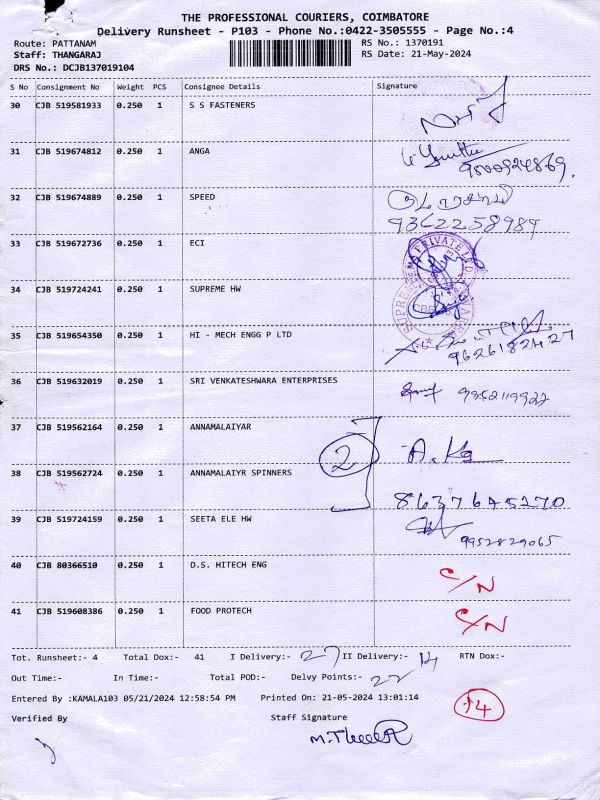 THE PROFESSIONAL COURIERS, COIMBATORE
Delivery Runsheet - P103 - Phone No.:0422-3505555 - Page No.:4
Route: PATTANAM
Staff: THANGARAJ
DRS No.: DCJB137019104
RS No.: 1370191
RS Date: 21-May-2024
S No Consignment No Weight PCS Consignee Details Signature
30 CJB 519581933 0.250 1 S S FASTENERS
31 CJB 519674812 0.250 1 ANGA
9500924869.
32 CJB 519674889 0.250 1 SPEED
9362258989
33 CJB 519672736 0.250 1 ECI
34 CJB 519724241 0.250 1 SUPREME HW
35 CJB 519654350 0.250 1 HI - MECH ENGG P LTD
9626182427
36 CJB 519632019 0.250 1 SRI VENKATESHWARA ENTERPRISES
37 CJB 519562164 0.250 1 ANNAMALAIYAR
2
38 CJB 519562724 0.250 1 ANNAMALAIYR SPINNERS
8637645270
39 CJB 519724159 0.250 1 SEETA ELE HW
9952829065
40 CJB 80366510 0.250 1 D.S. HITECH ENG C/N
41 CJB 519608386 0.250 1 FOOD PROTECH C/N
Tot. Runsheet:- 4 Total Dox:- 41 I Delivery:- 27 II Delivery:- 14 RTN Dox:-
Out Time:- In Time:- Total POD:- Delvy Points:- 22
Entered By :KAMALA103 05/21/2024 12:58:54 PM Printed On: 21-05-2024 13:01:14
14
Verified By Staff Signature